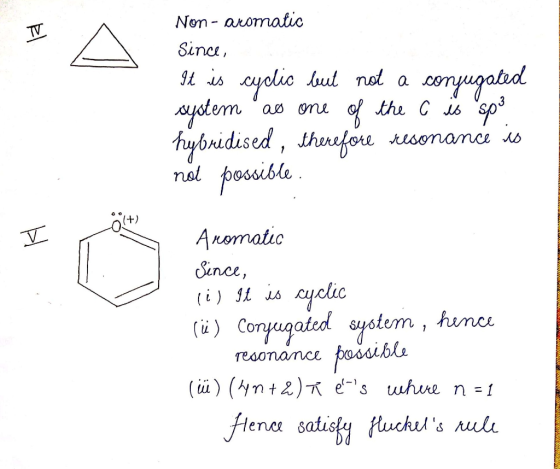 IV
Non-aromatic
Since,
It is cyclic but not a conjugated
system as one of the C is sp³
hybridised, therefore resonance is
not possible.
V
O (+)
Aromatic
Since,
(i) It is cyclic
(ii) Conjugated system, hence
resonance possible
(iii) (4n+2)π e⁻'s where n=1
Hence satisfy Huckel's rule